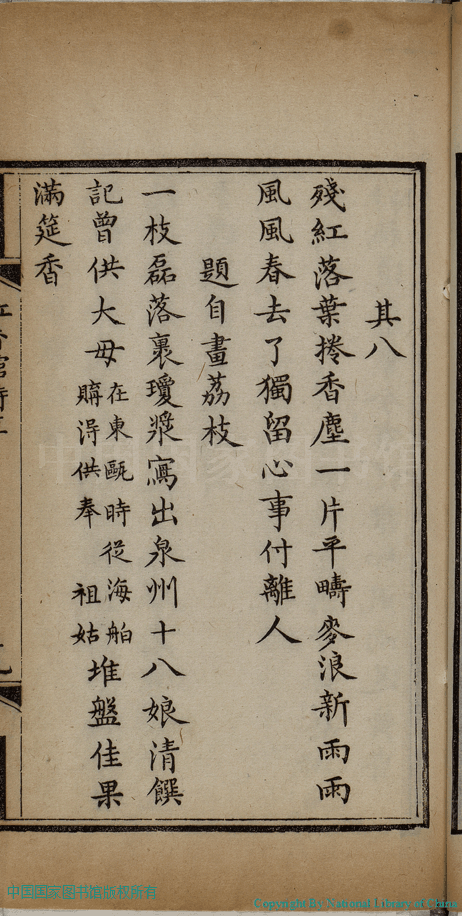 其八
殘紅落葉捲香塵一片平疇麥浪新雨雨
風風春去了獨留心事付離人
題自畫荔枝
一枝磊落裹瓊漿寫出泉州十八娘清饌
記曾供大母
在東甌時從海舶
購淂供奉祖姑
堆盤佳果
滿筵香
中国国家图书馆版权所有
Copyright By National Library of China